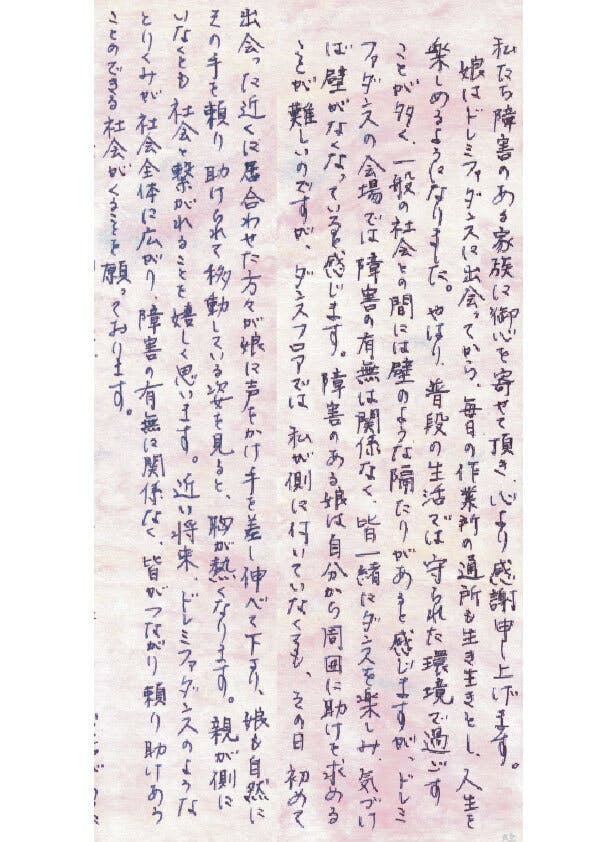 私たち障害のある家族に御心を寄せて頂き、心より感謝申し上げます。
娘はドレミファダンスに出会ってから、毎日の作業所の通所も生き生きとし、人生を
楽しめるようになりました。やはり、普段の生活では守られた環境で過ごす
ことが多く、一般の社会との間には壁のような隔たりがあると感じますが、ドレミ
ファダンスの会場では障害の有無は関係なく、皆一緒にダンスを楽しみ、気づけ
ば壁がなくなっていると感じます。障害のある娘は自分から周囲に助けを求める
ことが難しいのですが、ダンスフロアでは、私が側に付いていなくても、その日初めて
出会った近くに居合わせた方々が娘に声をかけ手を差し伸べて下さり、娘も自然に
その手を頼り助けられて移動している姿を見ると、胸が熱くなります。親が側に
いなくとも社会と繋がれることを嬉しく思います。近い将来、ドレミファダンスのような
とりくみが社会全体に広がり、障害の有無に関係なく、皆がつながり頼り助けあう
ことのできる社会がくることを願っております。